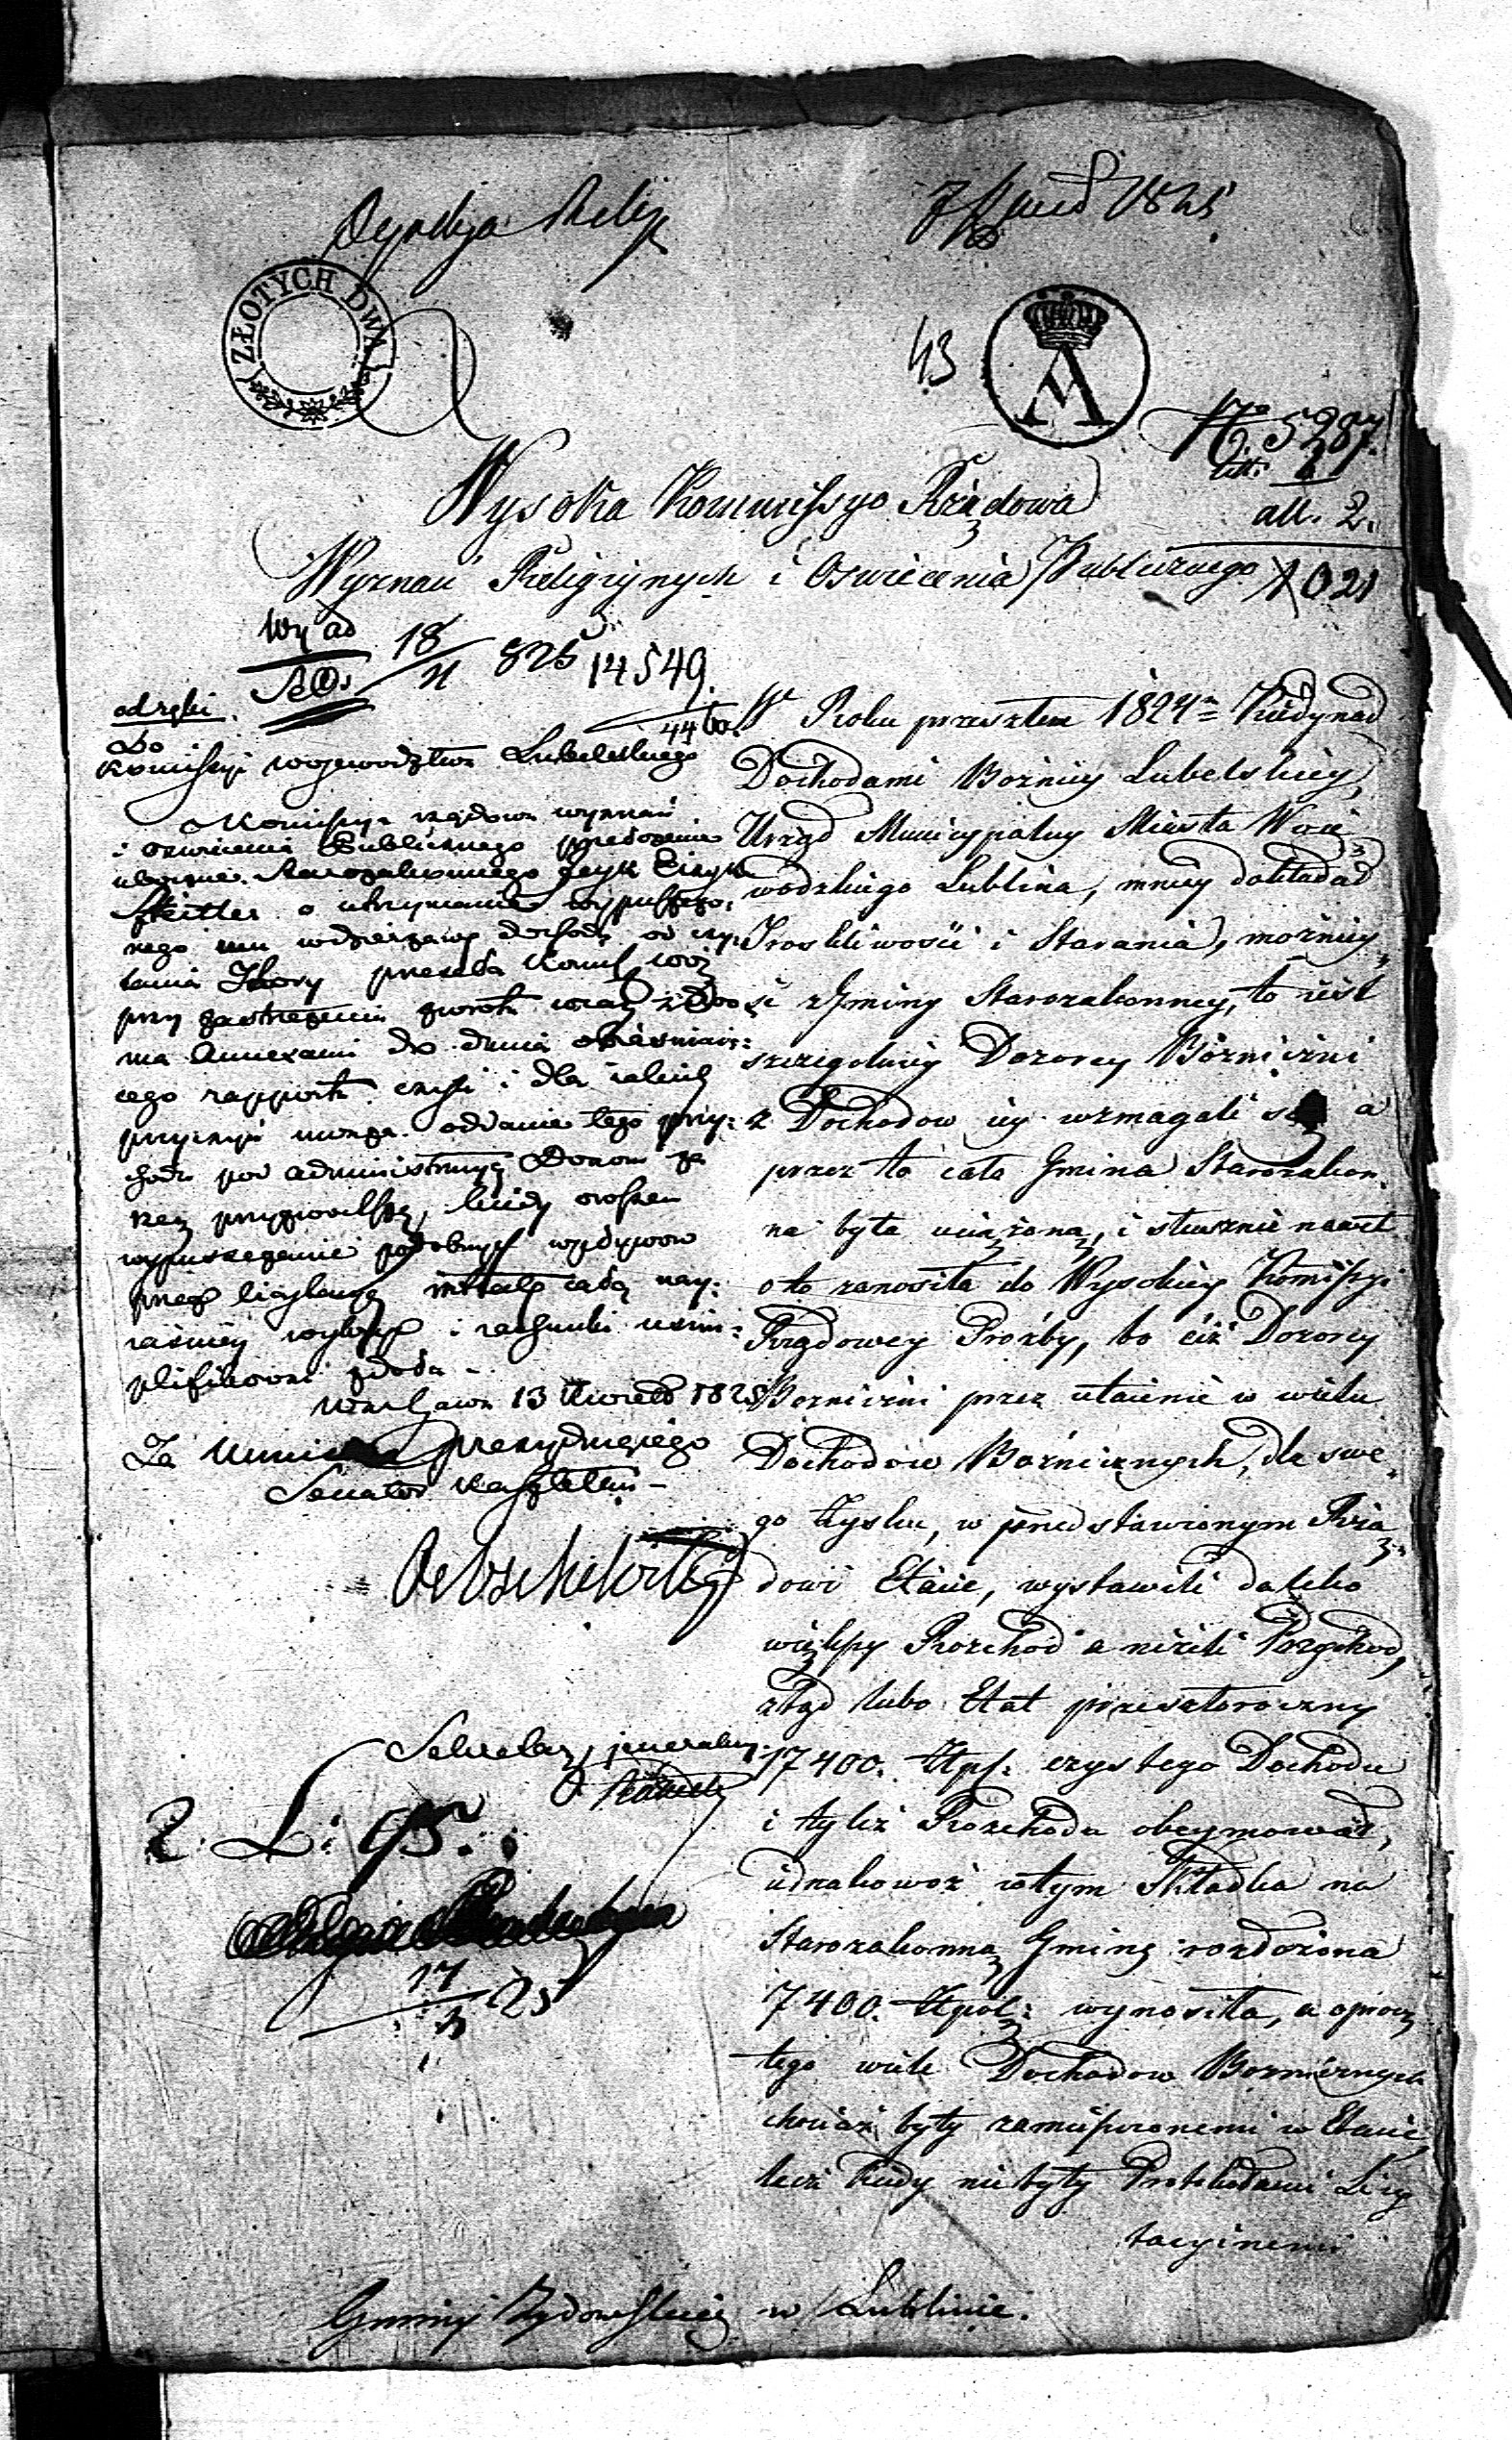 Dyrekcja Relig
7 Kwiet 1825
ZŁOTYCH DWA
43
No 5287.
Litt.
all. 2.
1021
Wysoka Kommissyo Rządowa
Wyznań Religiynych i Oswiecenia Publicznego
18/4 825
14549.
odręki.
Do
Komissyi Wojewodztwa Lubelskiego
Komissya rządowa wyznań
i oswiecenia Publicznego
Starozakonnego
o utrzymanie
nego mu w dzierzawę dochodu od czy-
tania Thory przesyła Komis woj
przy zastrzeżeniu zwrotu wraz z
ma Annexami do dania obiaśniaią:
cego rapportu czyli i dla iakiey
przyczyny odanie tego przy:
chodu pod administracyą Dozoru
kiedy owszem
wypuszczenie podobnych wpływow
przez licytacyą intratę całą nay:
iaśniey i rachunki usim:
plifikować zdoła -
Warszawa 13 Kwiet 1825
Za Ministra Prezyduiącego
Senator Kasztelan -
Sekretarz jeneralny
17/3 25
W Roku przeszłem 1824m Kiedy nad
Dochodami Bożnicy Lubelskiey,
Urząd Municypalny Miasta Woie
wodzkiego Lublina, mniey dokładał
Troskliwości i Starania, możniey
si z Gminy Starozakonney, to iest
szczegolniey Dozorcy Bożniczni
z Dochodow iey wzmagali się a
przez to cała Gmina Starozakon
na była uciążoną, i słusznie nawet
o to zanosiła do Wysokiey Komissyi
Rządowey Prożby, bo ciż Dozorcy
Bożniczni przez utaienie w wielu
Dochodow Bożnicznych, dla swe
go Zysku, w przedstawionym Rzą
dowi Etacie, wystawili daleko
większy Rozchod a niżeli Przychod,
ztąd lubo Etat przeszłoroczny
17400. Złpl: czystego Dochodu
i tyleż Rozchodu obeymował,
iednakowoż w tym Składka na
Starozakonną Gminę rozłożona
7400. Złpol: wynosiła, a oprocz
tego wiele Dochodow Bożnicznych
chociaż były zamieszczonemi w Etacie
lecz kiedy nie były Protokołami Licy
tacyinemi
Gminy Żydowskiey w Lublinie.